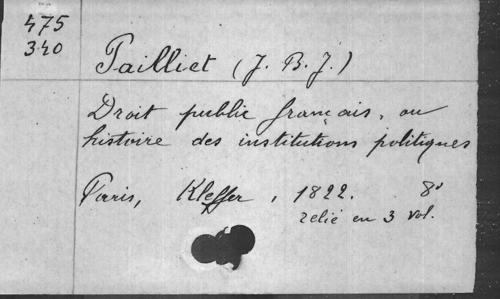 475
340
Pailliet (J. B. J.)
Droit public français, ou
histoire des institutions politiques
Paris, Kleffer, 1822. 8°
relié en 3 vol.